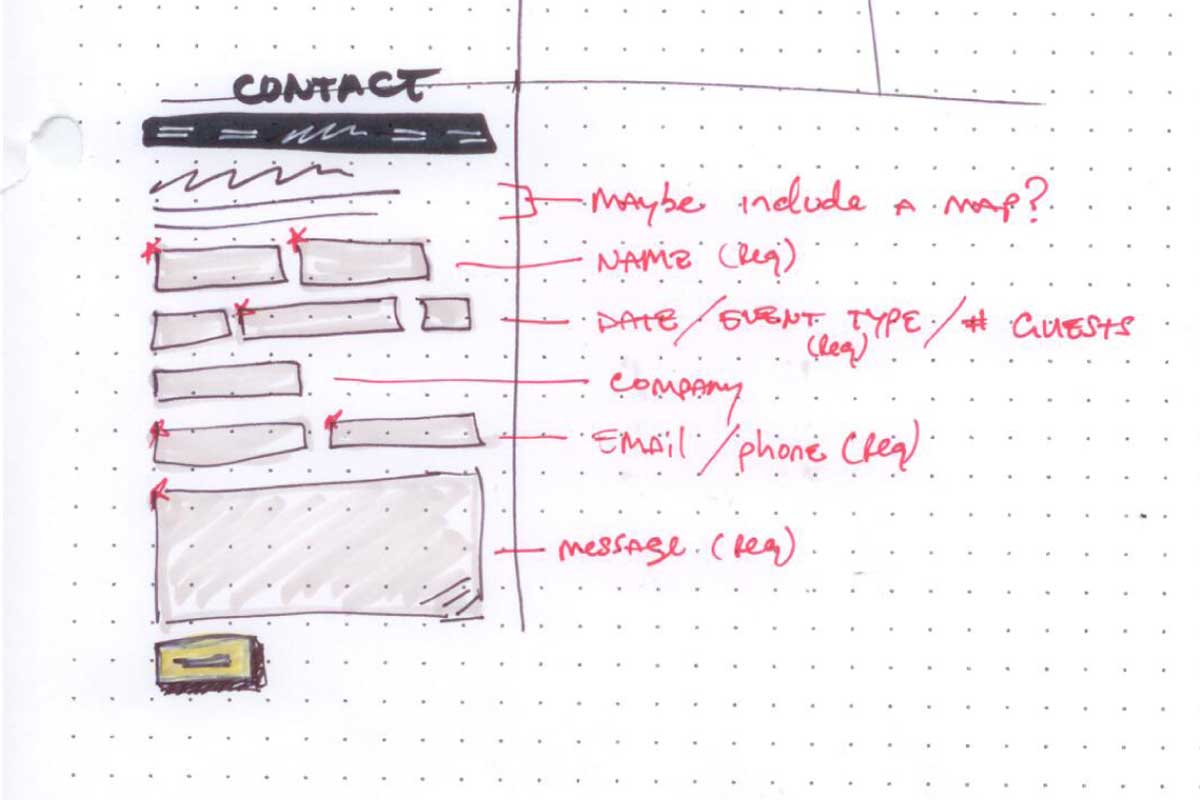 CONTACT
MAYbe include A MAP?
NAME (Req)
DATE / EVENT TYPE / # GUESTS
(Req)
COMPANY
EMAil / phone (Req)
MESSAGE (Req)